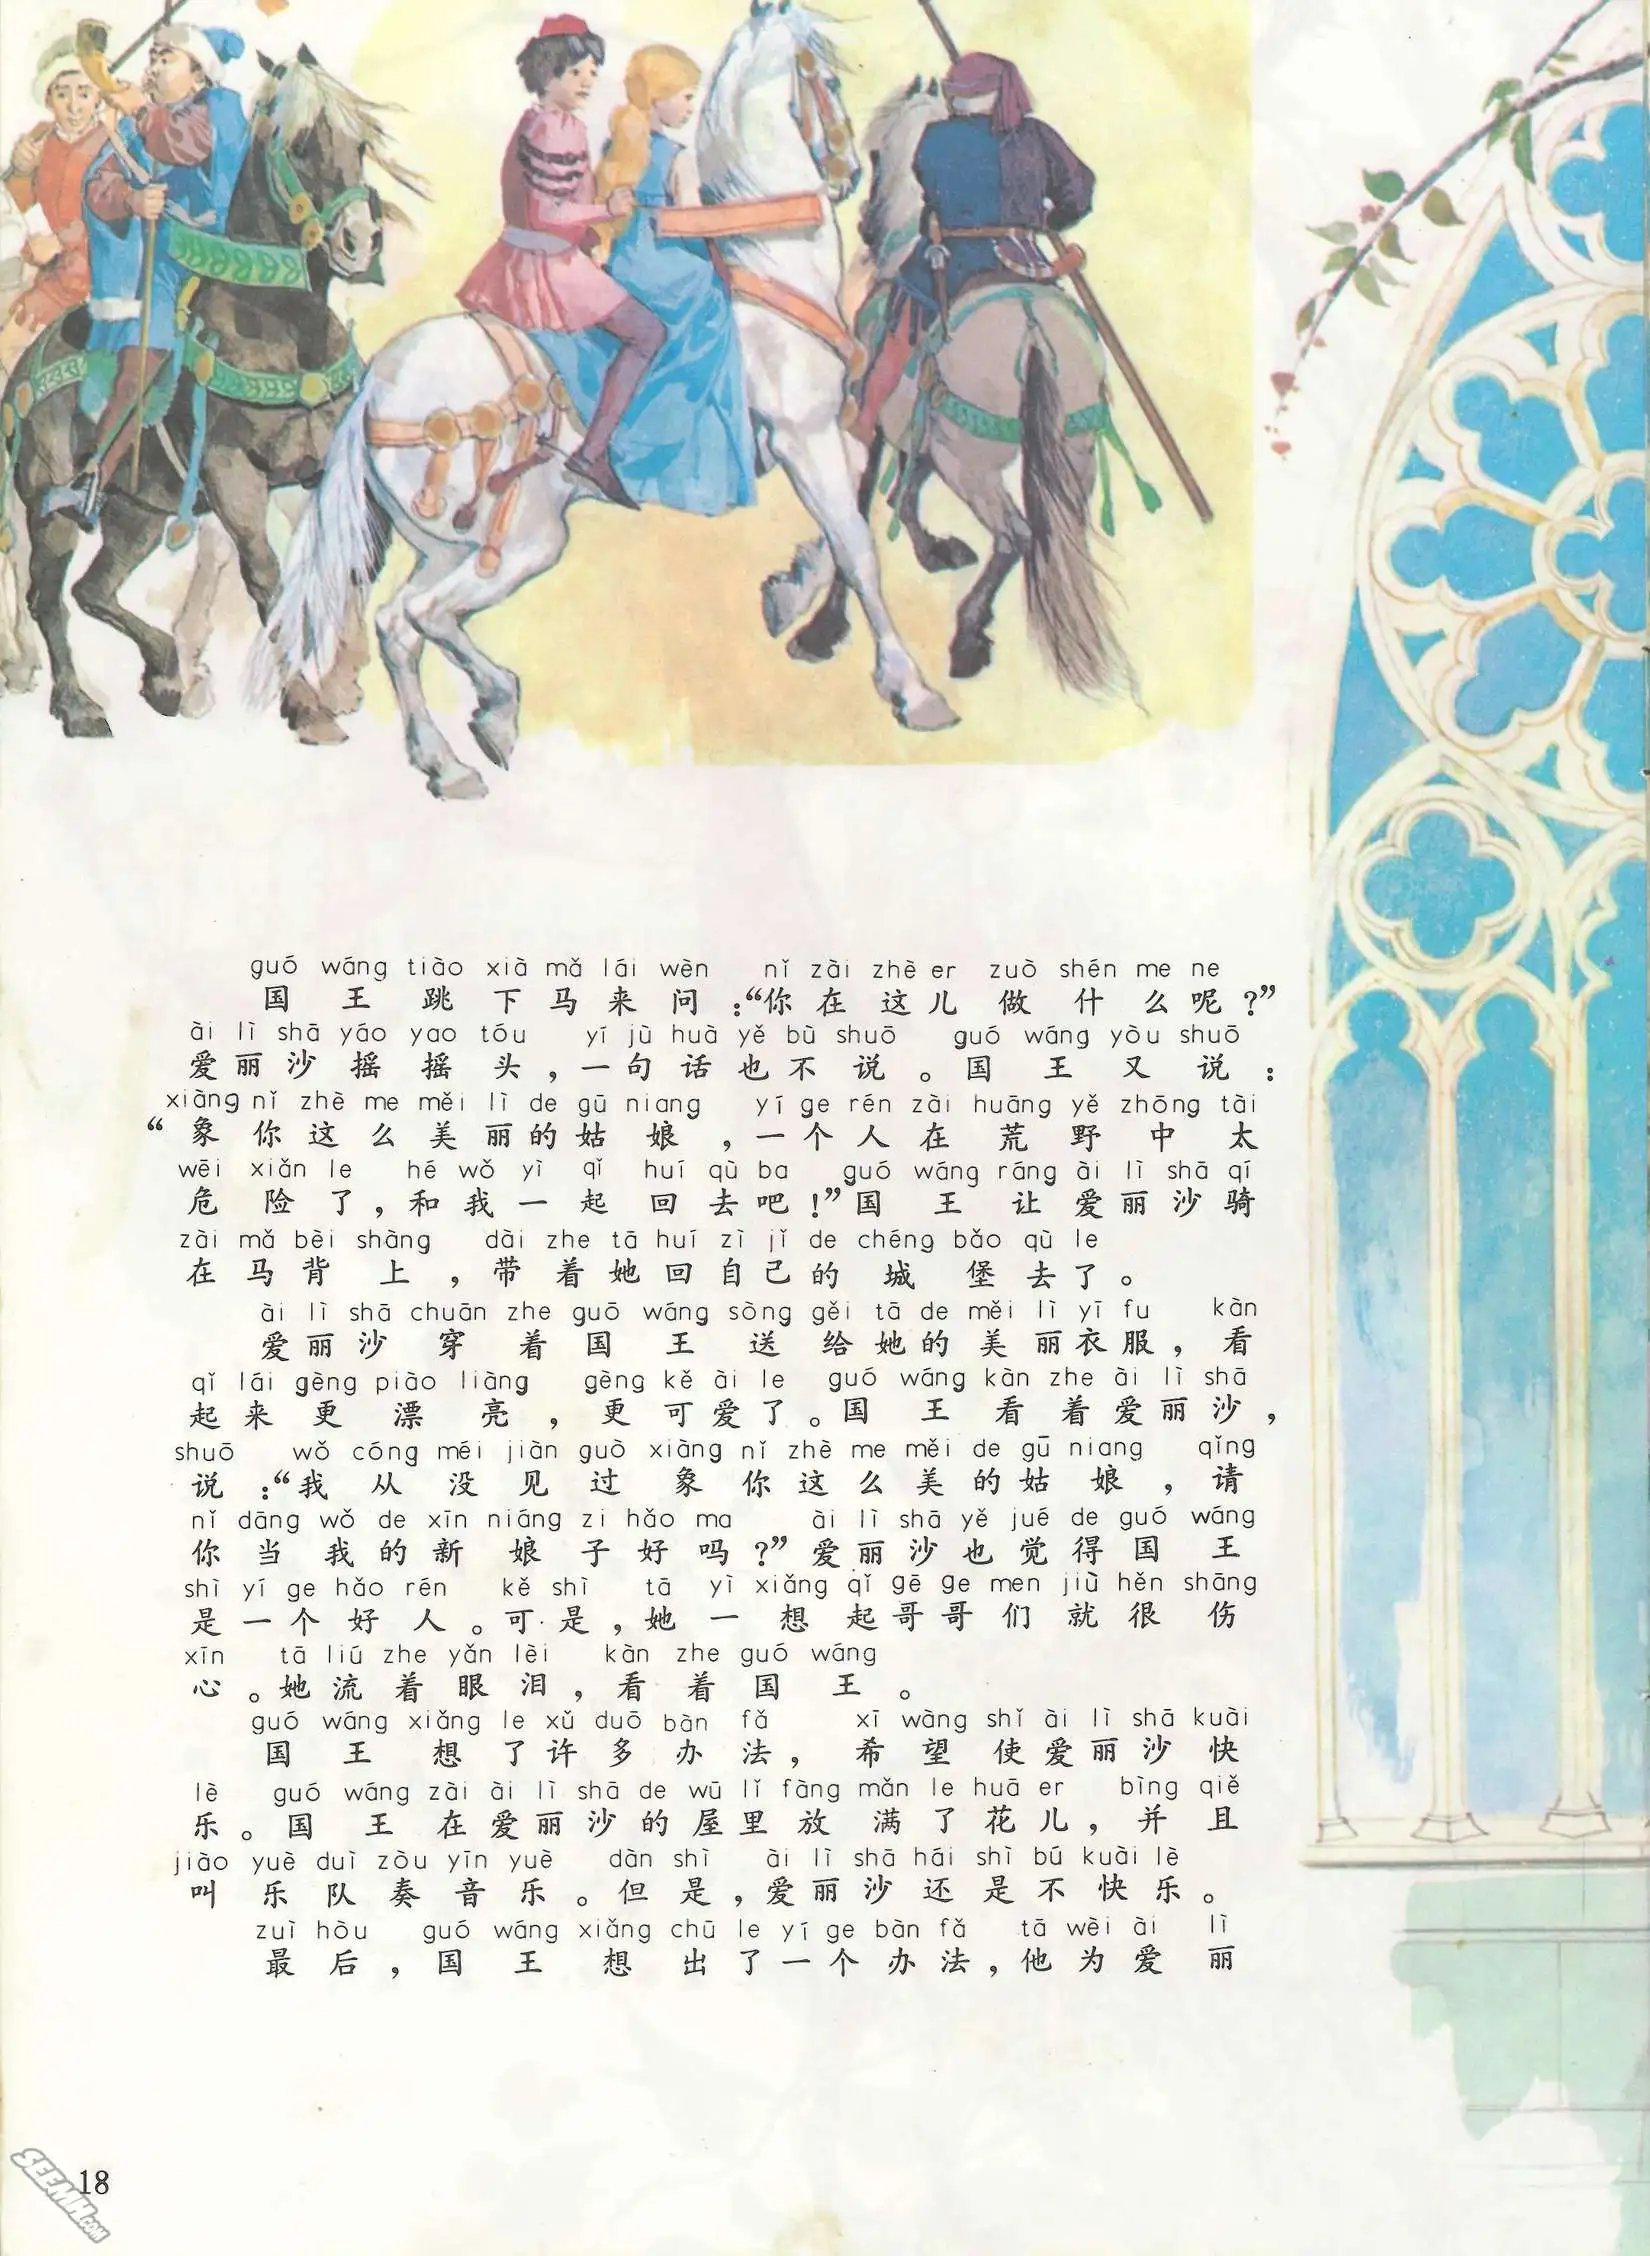 guó wáng tiào xià mǎ lái wèn nǐ zài zhè er zuò shén me ne
国王跳下马来问：“你在这儿做什么呢？”
ài lì shā yáo yao tóu yí jù huà yě bù shuō guó wáng yòu shuō
爱丽沙摇摇头，一句话也不说。国王又说：
xiàng nǐ zhè me měi lì de gū niang yí ge rén zài huāng yě zhōng tài
“象你这么美丽的姑娘，一个人在荒野中太
wēi xiǎn le hé wǒ yì qǐ huí qù ba guó wáng ráng ài lì shā qí
危险了，和我一起回去吧！”国王让爱丽沙骑
zài mǎ bèi shàng dài zhe tā huí zì jǐ de chéng bǎo qù le
在马背上，带着她回自己的城堡去了。
ài lì shā chuān zhe guó wáng sòng gěi tā de měi lì yī fu kàn
爱丽沙穿着国王送给她的美丽衣服，看
qǐ lái gèng piào liàng gèng kě ài le guó wáng kàn zhe ài lì shā
起来更漂亮，更可爱了。国王看着爱丽沙，
shuō wǒ cóng méi jiàn guò xiàng nǐ zhè me měi de gū niang qǐng
说：“我从没见过象你这么美的姑娘，请
nǐ dāng wǒ de xīn niáng zi hǎo ma ài lì shā yě jué de guó wáng
你当我的新娘子好吗？”爱丽沙也觉得国王
shì yí ge hǎo rén kě shì tā yì xiǎng qǐ gē ge men jiù hěn shāng
是一个好人。可是，她一想起哥哥们就很伤
xīn tā liú zhe yǎn lèi kàn zhe guó wáng
心。她流着眼泪，看着国王。
guó wáng xiǎng le xǔ duō bàn fǎ xī wàng shǐ ài lì shā kuài
国王想了许多办法，希望使爱丽沙快
lè guó wáng zài ài lì shā de wū lǐ fàng mǎn le huā er bìng qiě
乐。国王在爱丽沙的屋里放满了花儿，并且
jiào yuè duì zòu yīn yuè dàn shì ài lì shā hái shì bú kuài lè
叫乐队奏音乐。但是，爱丽沙还是不快乐。
zuì hòu guó wáng xiǎng chū le yí ge bàn fǎ tā wèi ài lì
最后，国王想出了一个办法，他为爱丽
18
SEEMH.COM